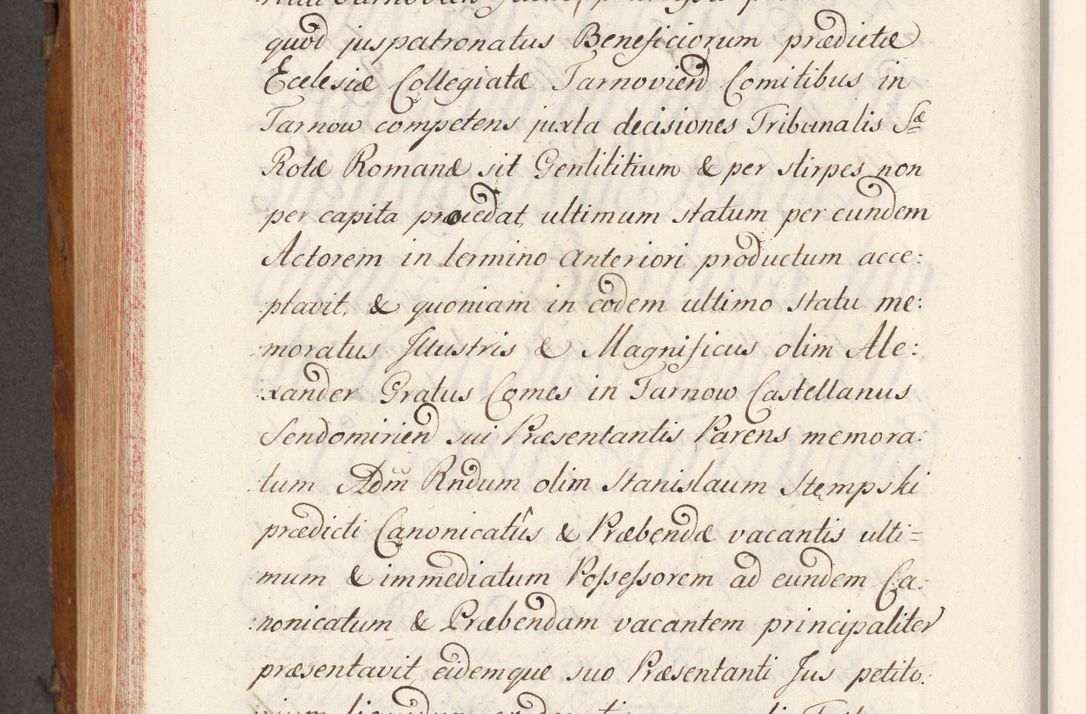 quod juspatronatus Beneficiorum prædictæ
Ecclesiæ Collegiatæ Tarnovien Comitibus in
Tarnow competens juxta decisiones Tribunalis Sæ
Rotæ Romanæ sit Gentilitium & per stirpes non
per capita procedat, ultimum statum per eundem
Actorem in termino anteriori productum acce:
ptavit, & quoniam in eodem ultimo statu me:
moratus Illustris & Magnificus olim Ale:
:xander Gratus Comes in Tarnow Castellanus
Sendomirien sui Præsentantis Parens memora:
tum Adm Rndum olim Stanislaum Stempski
prædicti Canonicatûs & Præbendæ vacantis ulti=
mum & immediatum Possessorem ad eundem Ca:
:nonicatum & Præbendam vacantem principaliter
præsentavit, eidemque suo Præsentanti Jus petito: